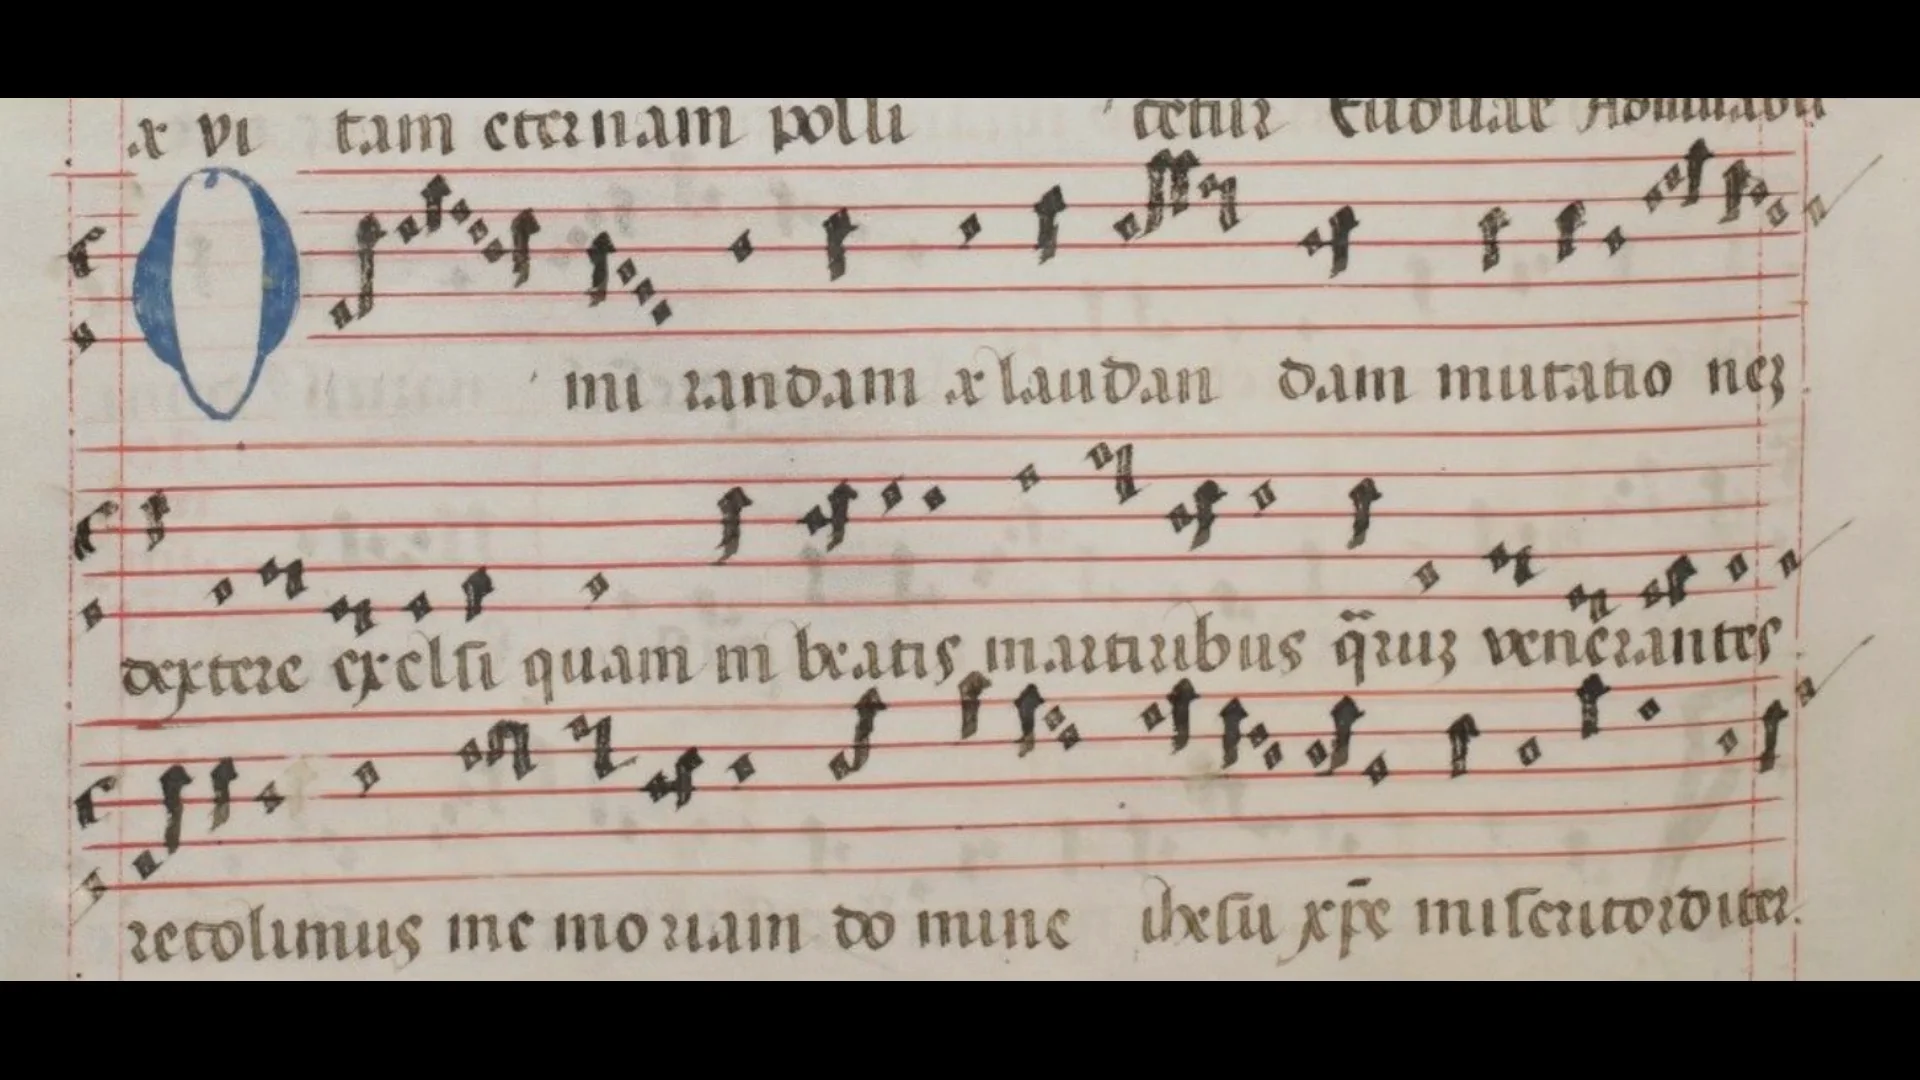 ⁊ vi tam eternam polli cetur Euouae
O mi randam ⁊ laudan dam mutatio neꝫ
dextere exelsi quam in beatis martiribus venerantes
recolimus me moriam do mine ihesu xp̄e misericorditer.